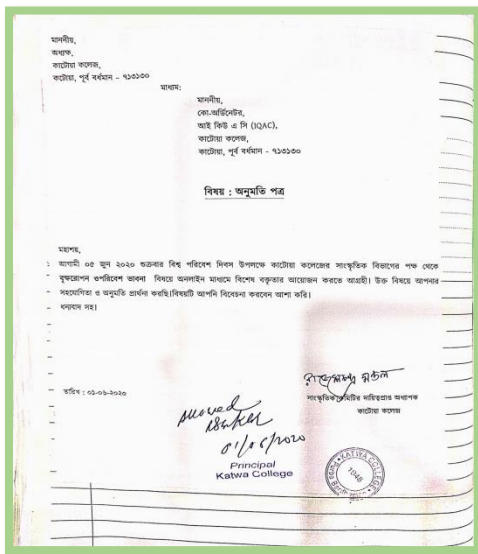 মাননীয়,
অধ্যক্ষ,
কাটোয়া কলেজ,
কাটোয়া, পূর্ব বর্ধমান – ৭১৩১৩০
মাধ্যম:
মাননীয়,
কো-অর্ডিনেটর,
আই কিউ এ সি (IQAC),
কাটোয়া কলেজ,
কাটোয়া, পূর্ব বর্ধমান – ৭১৩১৩০
বিষয় : অনুমতি পত্র
মহাশয়,
আগামী ০৫ জুন ২০২০ শুক্রবার বিশ্ব পরিবেশ দিবস উপলক্ষে কাটোয়া কলেজের সাংস্কৃতিক বিভাগের পক্ষ থেকে
বৃক্ষরোপন ওপরিবেশ ভাবনা বিষয়ে অনলাইন মাধ্যমে বিশেষ বক্তৃতার আয়োজন করতে আগ্রহী। উক্ত বিষয়ে আপনার
সহযোগিতা ও অনুমতি প্রার্থনা করছি।বিষয়টি আপনি বিবেচনা করবেন আশা করি।
ধন্যবাদ সহ।
তারিখ : ০১-০৬-২০২০
সাংস্কৃতিক কমিটির দায়িত্বপ্রাপ্ত অধ্যাপক
কাটোয়া কলেজ
01/06/2020
Principal
Katwa College
KATWA COLLEGE
1948